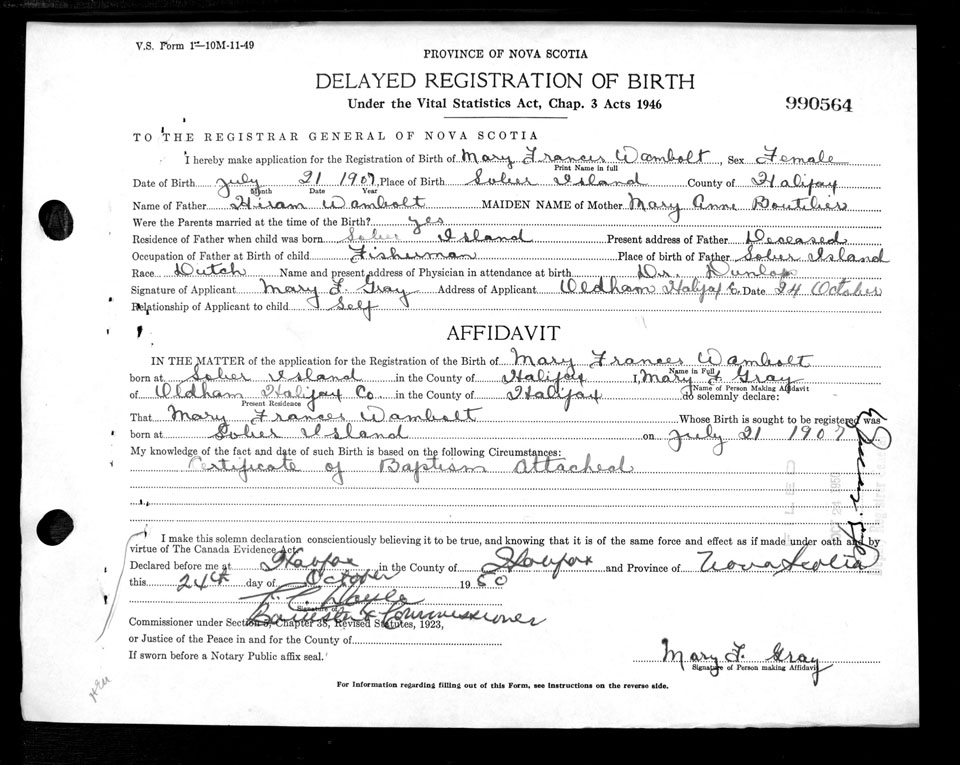 V.S. Form 1—10M-11-49
PROVINCE OF NOVA SCOTIA
DELAYED REGISTRATION OF BIRTH
Under the Vital Statistics Act, Chap. 3 Acts 1946
990564
TO THE REGISTRAR GENERAL OF NOVA SCOTIA
I hereby make application for the Registration of Birth of Mary Frances Wambolt, Sex Female
Print Name in full
Date of Birth July 21 1907, Place of Birth Sober Island County of Halifax
Month Date Year
Name of Father Hiram Wambolt MAIDEN NAME of Mother Mary Anne Boutilier
Were the Parents married at the time of the Birth? yes
Residence of Father when child was born Sober Island Present address of Father Deceased
Occupation of Father at Birth of child Fisherman Place of birth of Father Sober Island
Race Dutch Name and present address of Physician in attendance at birth Dr. Dunlap
Signature of Applicant Mary F. Gray Address of Applicant Oldham Halifax C. Date 24 October
Relationship of Applicant to child Self
AFFIDAVIT
IN THE MATTER of the application for the Registration of the Birth of Mary Frances Wambolt
Name in Full
born at Sober Island in the County of Halifax I, Mary F Gray
Name of Person Making Affidavit
of Oldham Halifax Co in the County of Halifax do solemnly declare:
Present Residence
That Mary Frances Wambolt Whose Birth is sought to be registered was
born at Sober Island on July 21 1907
My knowledge of the fact and date of such Birth is based on the following Circumstances:
Certificate of Baptism Attached
I make this solemn declaration conscientiously believing it to be true, and knowing that it is of the same force and effect as if made under oath and by
virtue of The Canada Evidence Act.
Declared before me at Halifax in the County of Halifax and Province of Nova Scotia
this 24th day of October 1950
Signature of
Barrister & Commissioner
Commissioner under Section 5, Chapter 38, Revised Statutes, 1923,
or Justice of the Peace in and for the County of
If sworn before a Notary Public affix seal.
Mary F. Gray
Signature of Person making Affidavit
For Information regarding filling out of this Form, see instructions on the reverse side.